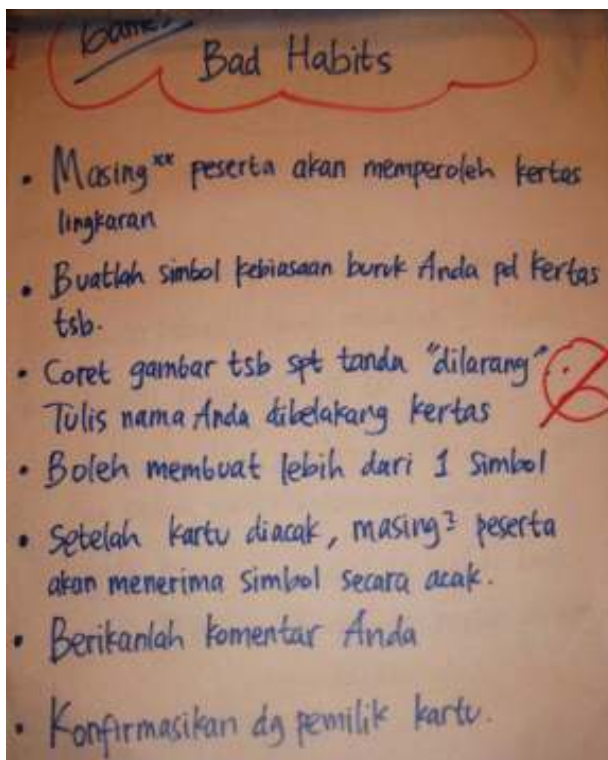 Games
Bad Habits
• Masing** peserta akan memperoleh kertas
lingkaran
• Buatlah simbol kebiasaan buruk Anda pd kertas
tsb.
• Coret gambar tsb spt tanda "dilarang".
Tulis nama Anda dibelakang kertas
• Boleh membuat lebih dari 1 simbol
• Setelah kartu diacak, masing² peserta
akan menerima simbol secara acak.
• Berikanlah komentar Anda
• Konfirmasikan dg pemilik kartu.